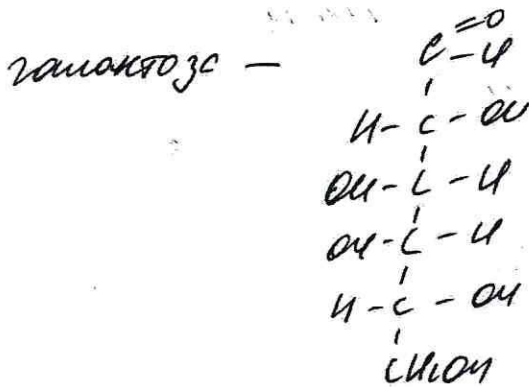 галактоза —
C=O
-H
H-C-OH
OH-C-H
OH-C-H
H-C-OH
CH2OH